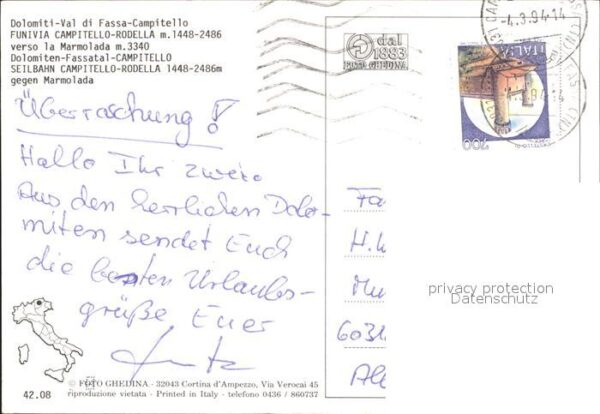 Dolomiti-Val di Fassa-Campitello
FUNIVIA CAMPITELLO-RODELLA m.1448-2486
verso la Marmolada m.3340
Dolomiten-Fassatal-CAMPITELLO
SEILBAHN CAMPITELLO-RODELLA 1448-2486m
gegen Marmolada
dal
1883
FOTO GHEDINA
-4.3.94-14
ITALIA
700
Überraschung!
Hallo Ihr zwei.
Aus den herrlichen Dolo-
miten sendet Euch
die besten Urlaubs-
grüße Euer
Fa
H.
Mu
603
Al
privacy protection
Datenschutz
© FOTO GHEDINA - 32043 Cortina d'Ampezzo, Via Verocai 45
riproduzione vietata - Printed in Italy - telefono 0436 / 860737
42.08